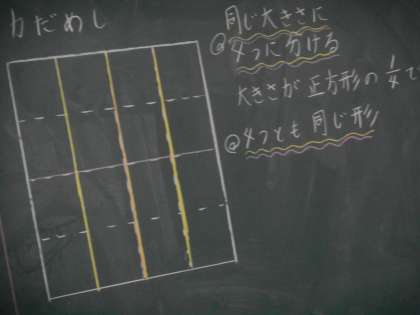 力だめし
同じ大きさに
@4つに分ける
大きさが正方形の1/4で
@4つとも同じ形